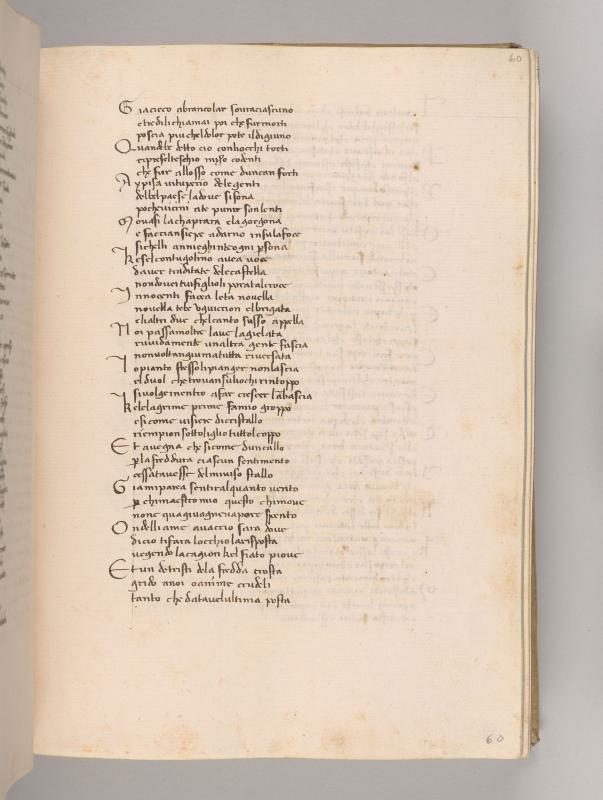 60
Gia cieco abrancolar souraciascuno
etredilichiamai poi chefurmorti
poscia piucheldolor pote ildigiuno
Quandebe detto cio conliocchi torti
ripreselteschio misso codenti
che fur allosso come duncan forti
Ay pisa uituperio delegenti
delbelpaese ladoue sisona
poscheuicini ate punir sonlenti
Mouasi lachaprara elagorgona
e facciansiepe adarno insulafoce
sichelli annieghinteogni psona
Kesel contugolino auea uoce
dauer traditate delecastella
nondoueitu ifiglioli poratalcroce
Innocenti facea leta nouella
nouella tebe uguicion elbrigata
elialtri due chelcanto suso appella
Noi passamoltre laue lagielata
ruuidamente unaltra gente fascia
nonuoltangiumatutta riuersata
Lo pianto stessoli pianger nonlascia
elduol che trouansuliochi rintoppo
siuolgeinentro afar crescer lābascia
Kelelagrime prime fanno groppo
esicome uisiere dicristallo
riempion sottoliglio tuttolcoppo
Et auegna che sicome duncallo
pla freddura ciascun sentimento
cessatauesse delmiuiso stallo
Gia miparea sentiralquanto uento
p chimaestromio questo chimoue
none quagiuognevapore spento
Ondelli ame auaccio sara doue
dicio tifara locchiolarisposta
uegendo lacagion kelfiato pioue
Et un detristi dela fredda crosta
grido anoi oanime crudeli
tanto che dataueلultima posta
60